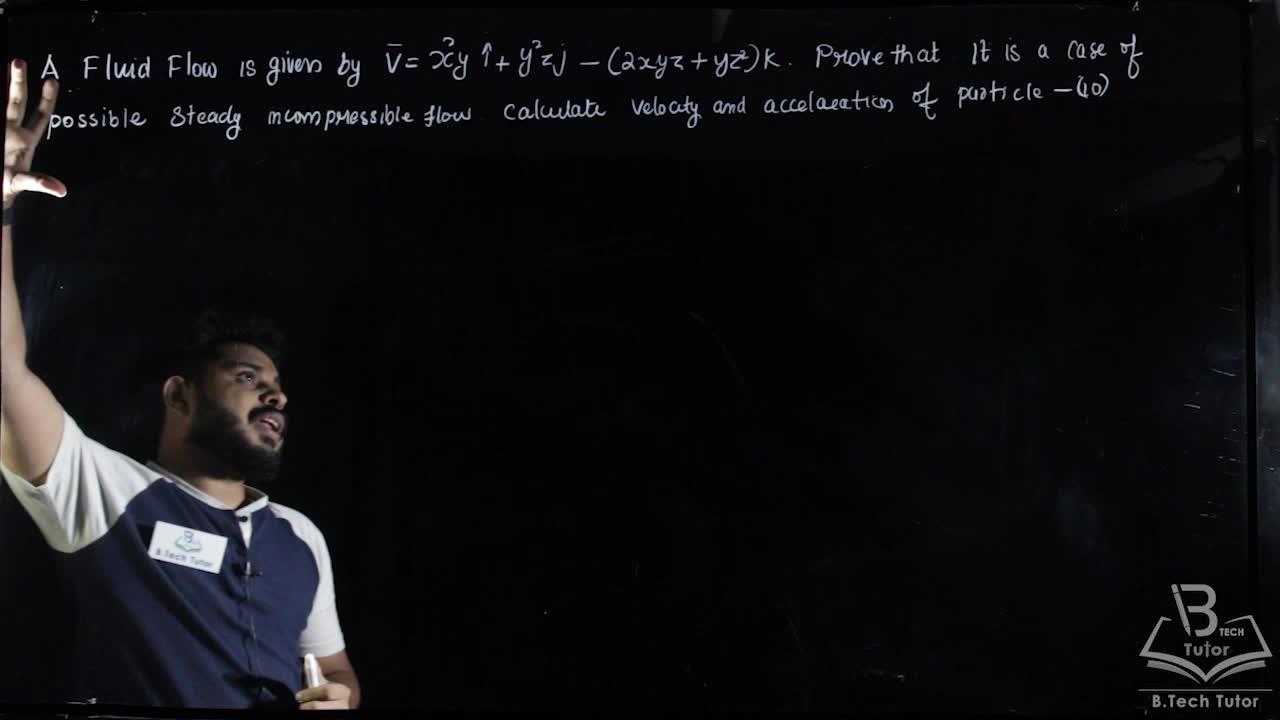 A Fluid Flow is given by V̄ = x²y î + y²zj – (2xyz + yz²)k. Prove that It is a case of
possible steady incompressible flow. Calculate velocity and accelaration of particle – (10)
B
B.Tech Tutor
B
TECH
Tutor
B.Tech Tutor